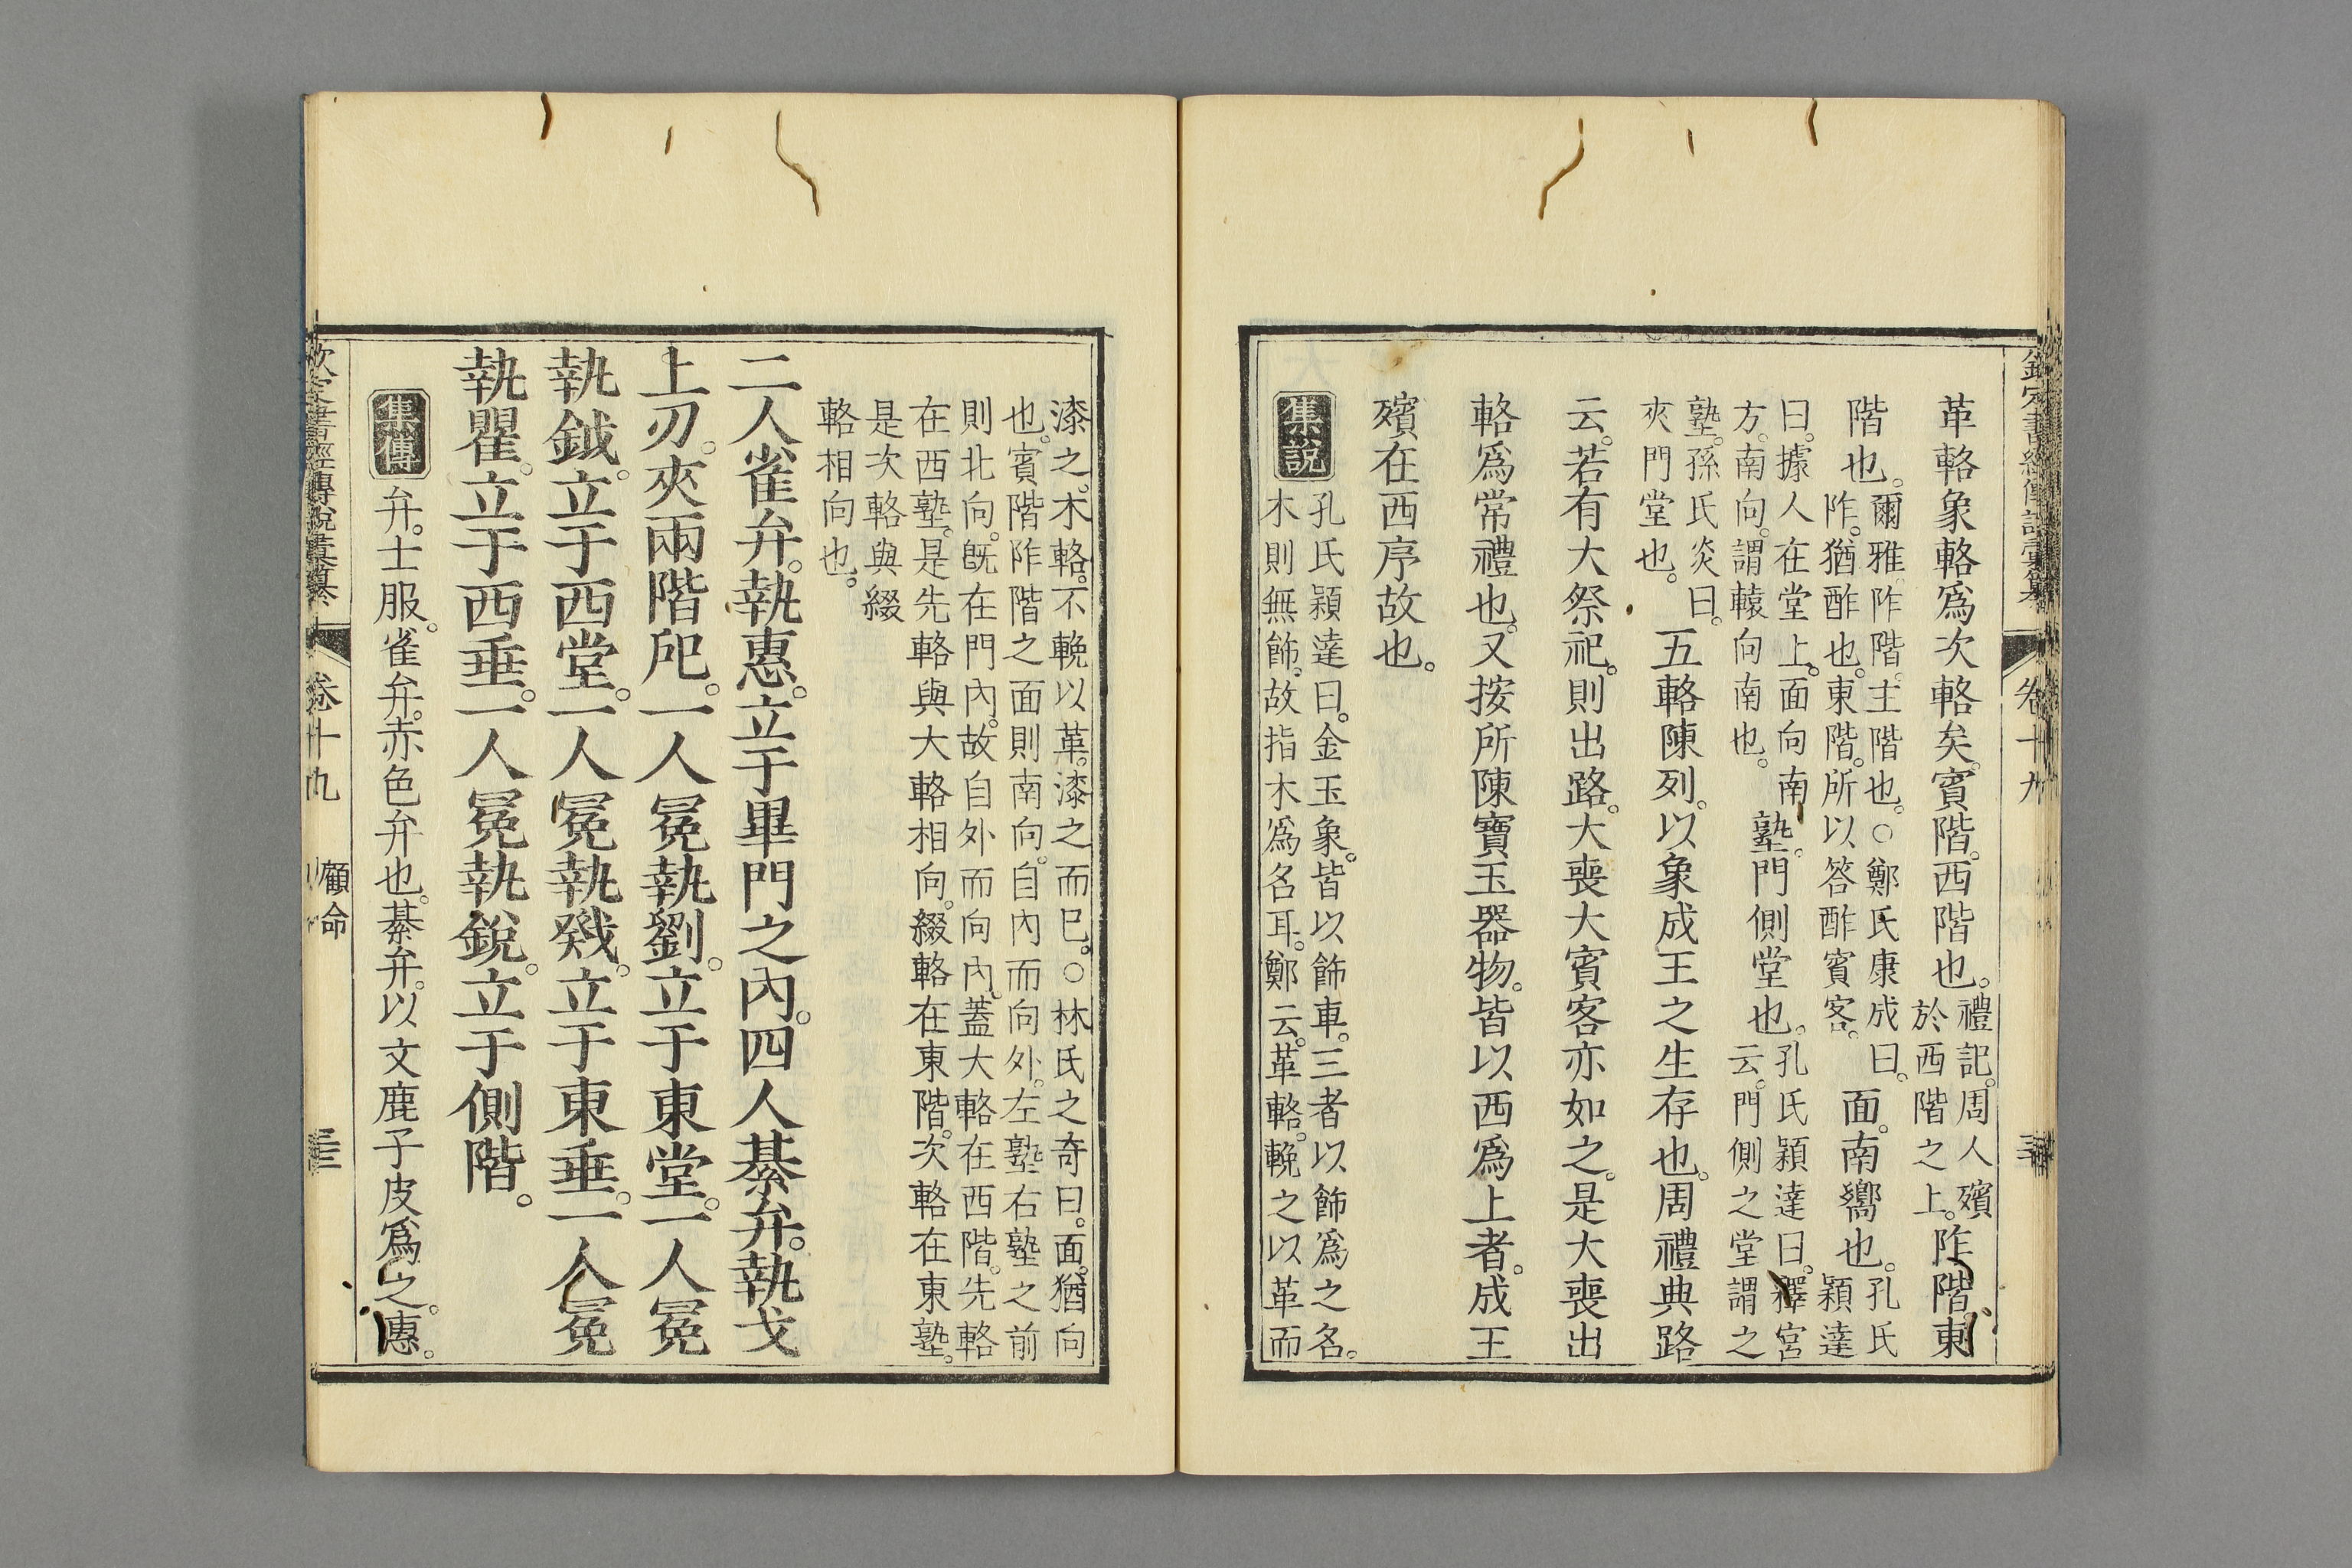 欽定書經傳說彙纂 卷十九
革輅象輅爲次輅矣。賓階。西階也。禮記。周人殯於西階之上。阼階東
階也。爾雅。阼階。主階也。○鄭氏康成曰。阼。猶酢也。東階。所以答酢賓客。面。南嚮也。孔氏穎達
曰。據人在堂上。面向南方。南向。謂轅向南也。塾。門側堂也。孔氏穎達曰。釋宮云。門側之堂謂之
塾。孫氏炎曰。夾門堂也。五輅陳列。以象成王之生存也。周禮典路
云。若有大祭祀。則出路。大喪大賓客亦如之。是大喪出
輅爲常禮也。又按所陳寶玉器物。皆以西爲上者。成王
殯在西序故也。
集說 孔氏穎達曰。金玉象。皆以飾車。三者以飾爲之名。
木則無飾。故指木爲名耳。鄭云。革輅。輓之以革而
漆之。木輅。不輓以革。漆之而已。○林氏之奇曰。面。猶向
也。賓階阼階之面則南向。自內而向外。左塾右塾之前
則北向。旣在門內。故自外而向內。蓋大輅在西階。先輅
在西塾。是先輅與大輅相向。綴輅在東階。次輅在東塾。
是次輅與綴
輅相向也。
二人雀弁。執惠。立于畢門之內。四人綦弁。執戈
上刃。夾兩階戺。一人冕執劉。立于東堂。一人冕
執鉞。立于西堂。一人冕執戣。立于東垂。一人冕
執瞿。立于西垂。一人冕執銳。立于側階。
集傳 弁。士服。雀弁。赤色弁也。綦弁。以文鹿子皮爲之。惠。
欽定書經傳說彙纂 卷十九 顧命